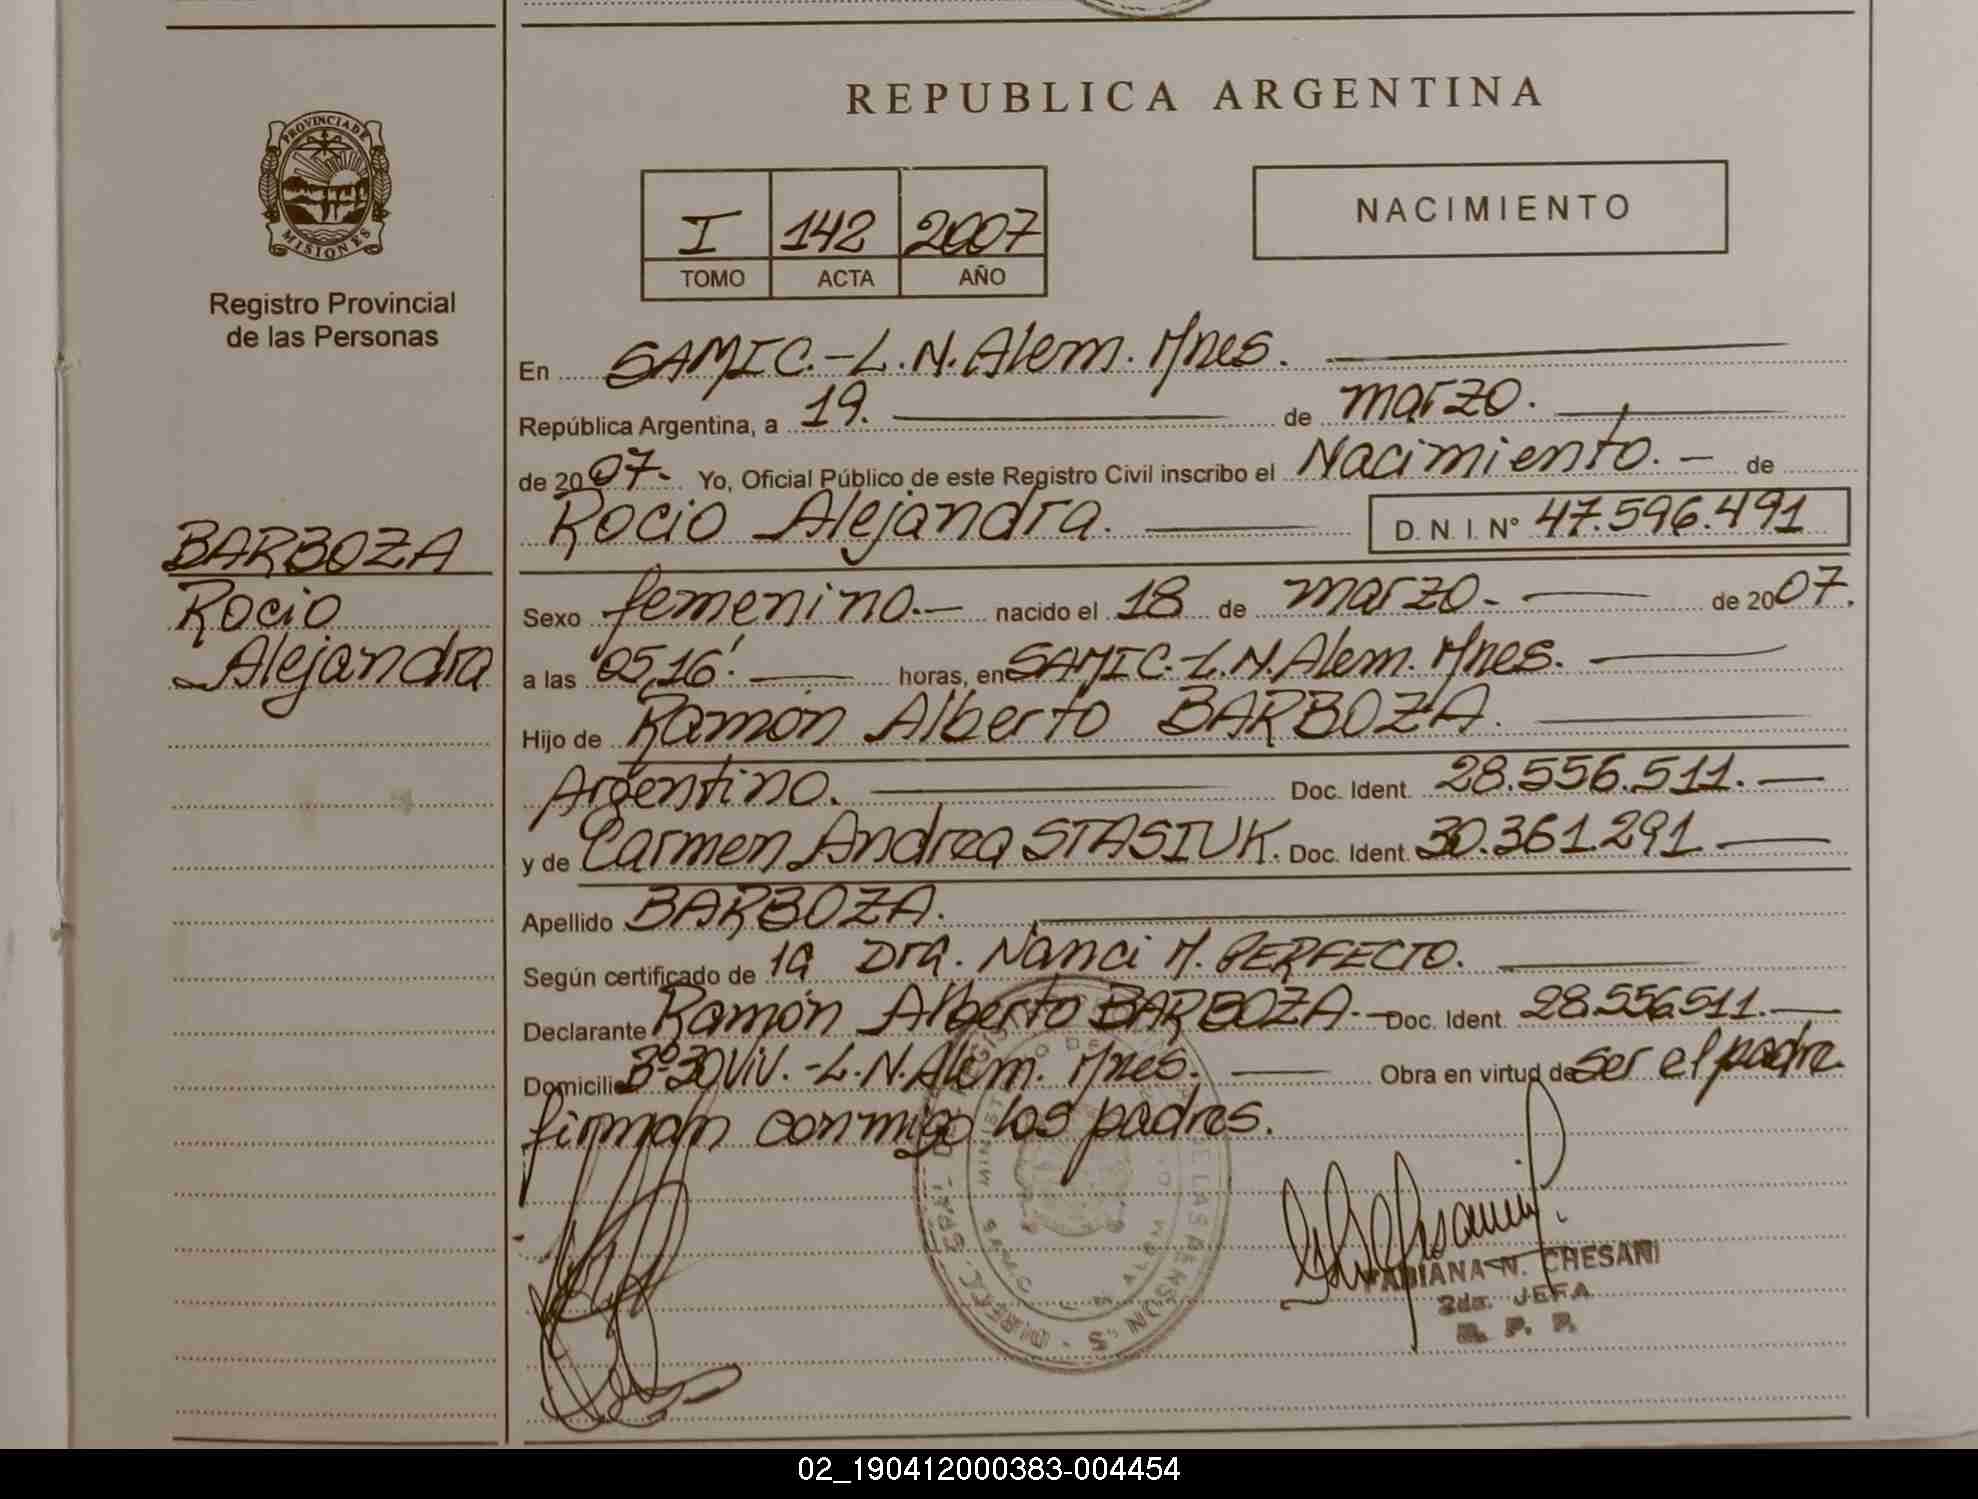 REPUBLICA ARGENTINA
PROVINCIA DE
MISIONES
Registro Provincial
de las Personas
I 142 2007
TOMO ACTA AÑO
NACIMIENTO
En SAMIC.-L.N.Alem. Mnes.
República Argentina, a 19. de marzo.
de 2007- Yo, Oficial Público de este Registro Civil inscribo el Nacimiento.- de
Rocio Alejandra. D. N. I. N° 47.596.491
BARBOZA
Rocio
Alejandra
Sexo femenino.- nacido el 18 de marzo.- de 2007.
a las 05,16'. horas, en SAMIC.-L.N.Alem. Mnes.
Hijo de Ramón Alberto BARBOZA.
Argentino. Doc. Ident. 28.556.511.-
y de Carmen Andrea STASIUK. Doc. Ident. 30.361.291
Apellido BARBOZA.
Según certificado de la Dra. Nanci M. PERFECTO.
Declarante Ramón Alberto BARBOZA.- Doc. Ident. 28.556.511.-
Domicilio Bº30Viv.-L.N.Alem. Mnes. Obra en virtud de ser el padre.
firman conmigo los padres.
FABIANA N. CHESANI
2da. JEFA
R. P. P.
02_190412000383-004454